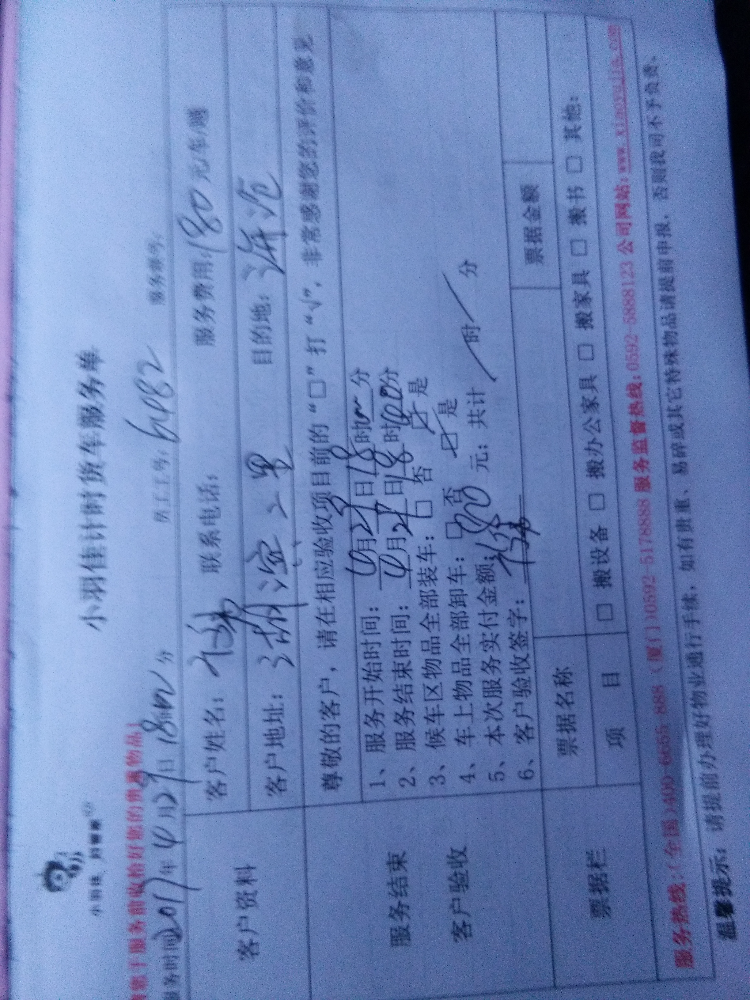 小羽佳计时货车服务单
小羽佳，好管家
服务时间2017年4月29日18时00分 员工工号：6482 服务单号：
客户资料
客户姓名： 联系电话： 服务费用：180元/车/趟
客户地址：湖滨二里 目的地：
服务结束
客户验收
尊敬的客户，请在相应验收项目前的“□”打“√”，非常感谢您的评价和意见
1、服务开始时间：4月29日18时00分
2、服务结束时间：4月29日18时40分
3、候车区物品全部装车：□否 ☑是
4、车上物品全部卸车：□否 ☑是
5、本次服务实付金额：180元；共计 时 分
6、客户验收签字：
票据栏
票据名称 票据金额
项目 □搬设备 □搬办公家具 □搬家具 □搬书 □其他：
服务热线：(全国)400-6655-888 (厦门)0592-5178888 服务监督热线：0592-5888123 公司网站：www.xiaoyujia.com
温馨提示：请提前办理好物业通行手续，如有贵重、易碎或其它特殊物品请提前申报，否则我司不予负责。